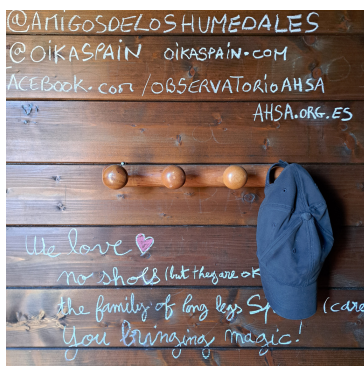 @AMIGOSDELOSHUMEDALES
@OIKASPAIN OIKASPAIN.COM
ACEBOOK.com/OBSERVATORIOAHSA
AHSA.ORG.ES
We love
no shoes (but they are ok
the family of long legs Sp (care
You bringing magic!